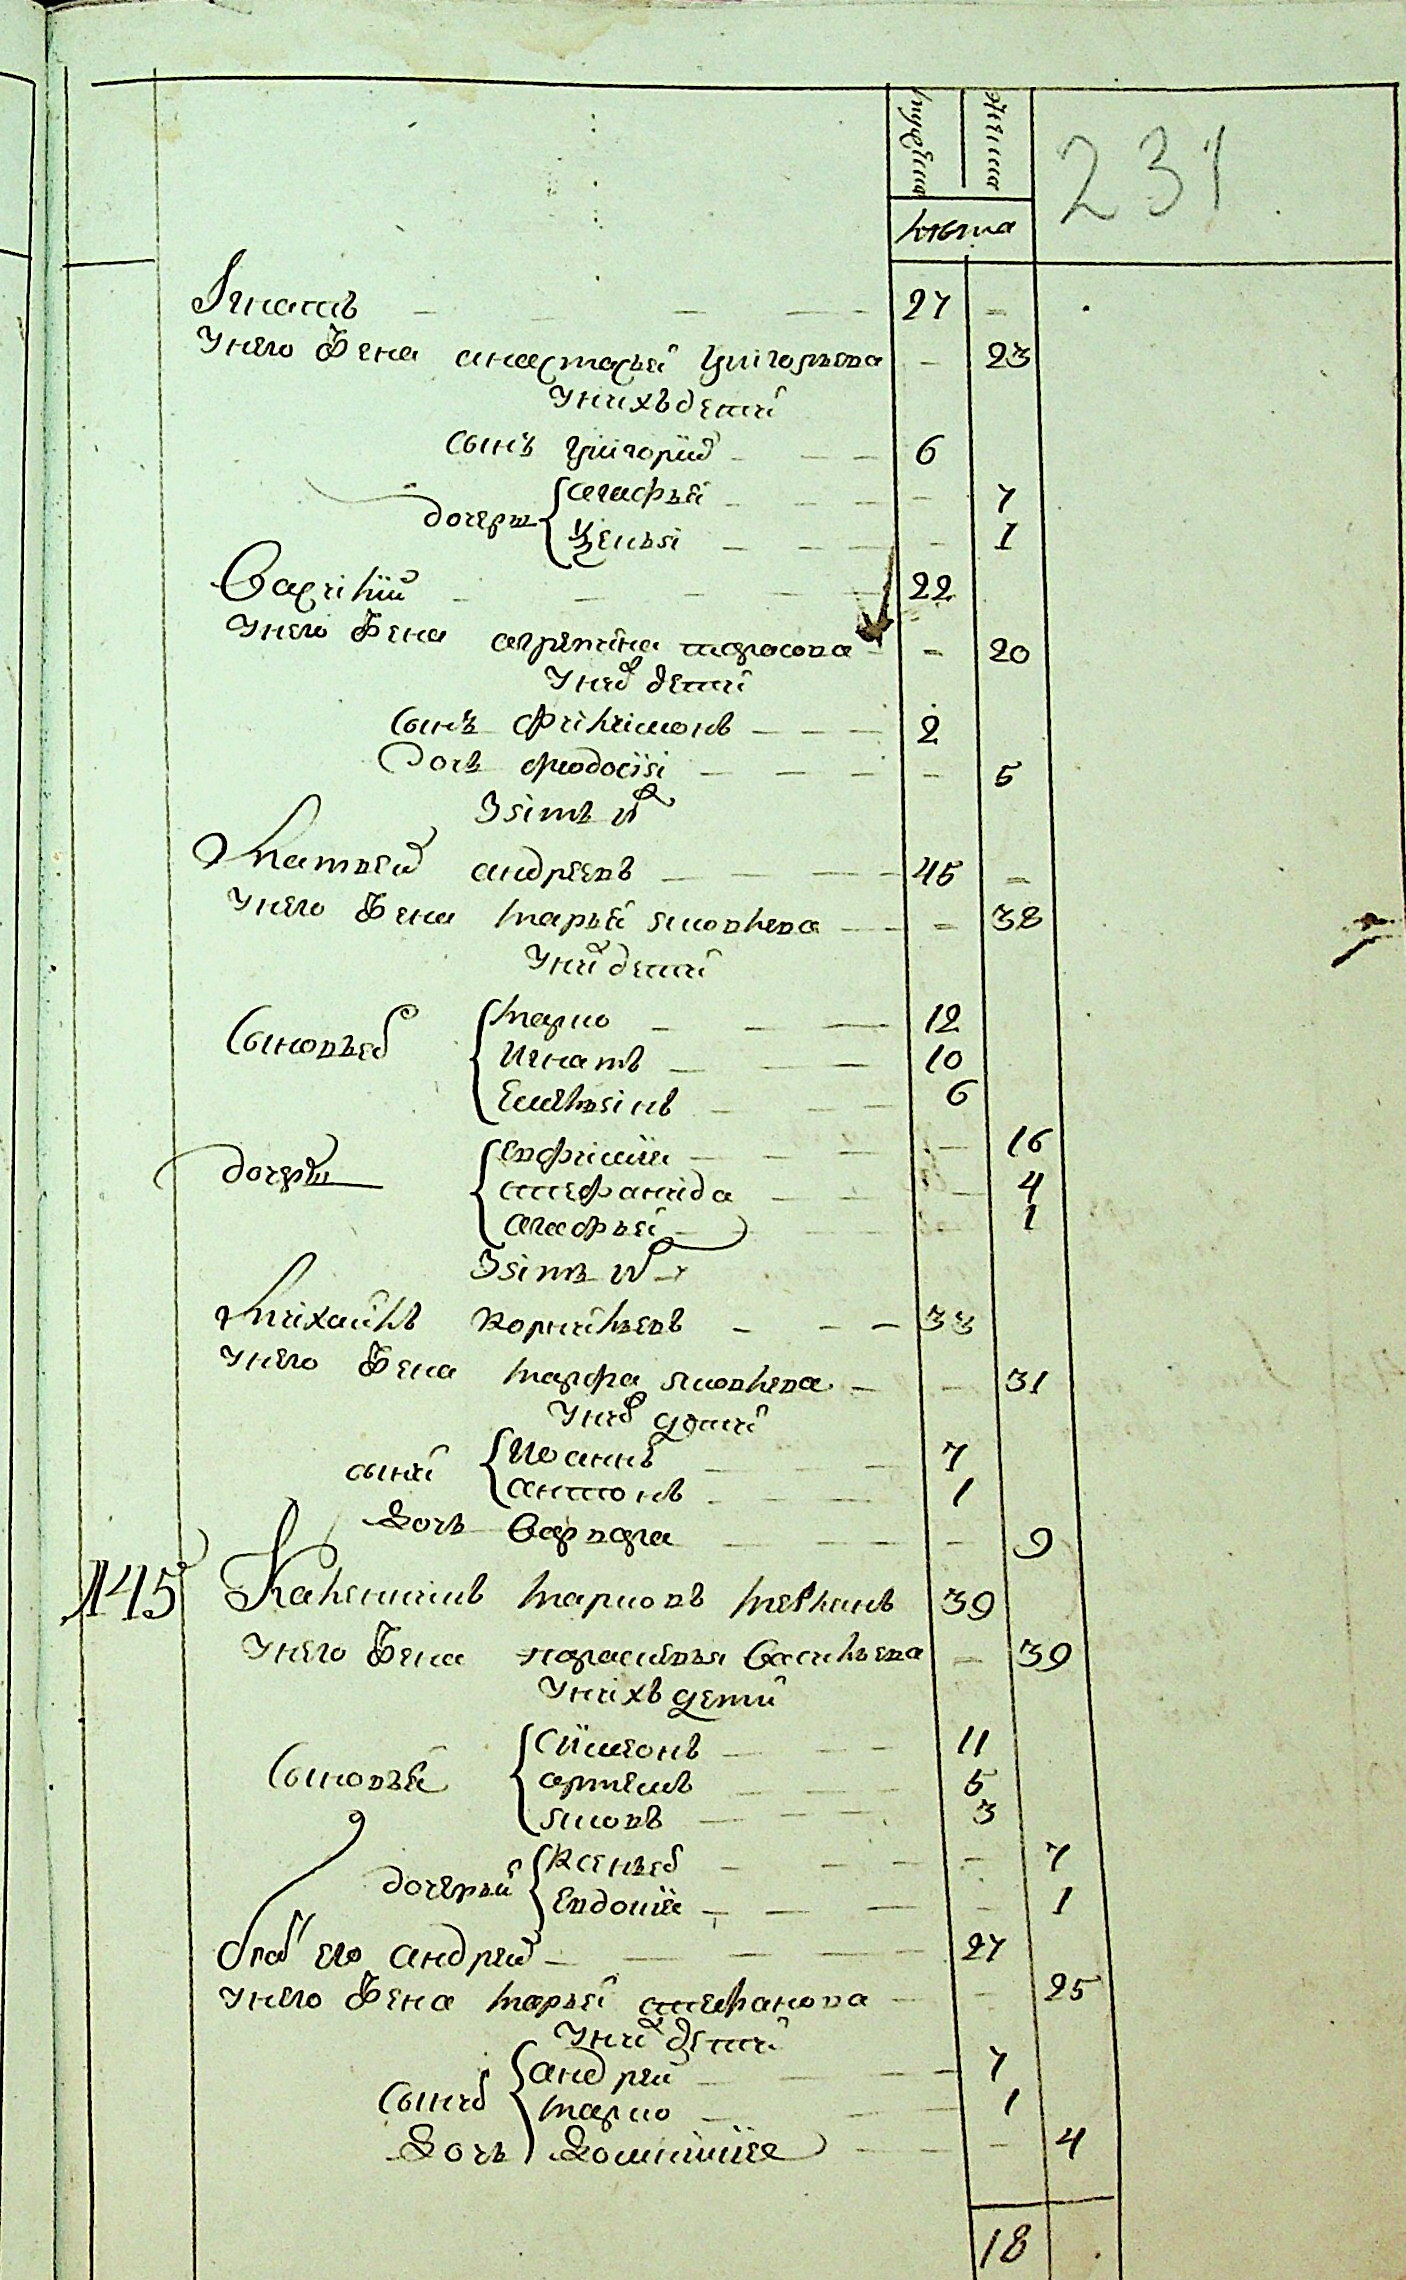 мужска женска
231
лѣта
Игнатъ — — — 27 —
Унего жена анастасьѣ григорьева — 23
Унихъ дети
сынъ григорий — — — 6
дочери { агафьѣ — — — — 7
ксенья — — — — 1
Василий — — — — 22
Унего жена агрепина тарасова — — 20
Уних дети
сынъ филимонъ — — — 2
Дочь феодосия — — — — 5
Зять их
Матвей андреевъ — — — 45 —
Унего жена марьѣ яковлева — — 38
Уних дети
Сыновьѣ { марко — — — 12
Игнатъ — — — 10
Емельянъ — — — 6
дочери { Евфимия — — — — 16
стефанида — — — — 4
агафьѣ — — — — 1
Зять их
Михайлъ корнильевъ — — — 33
Унего жена марфа яковлева — — 31
Уних дети
сыни { Иоаннъ — — 7
антонъ — — — 1
Дочь Варвара — — — — 9
145 Калениикъ марковъ 39
Унего жена парасковья васильева — 39
Унихъ дети
Сыновьѣ { Симеонъ — — — 11
артемъ — — — 5
яковъ — — — 3
дочерьи { ксеньѣ — — — — 7
Евдокия — — — — 1
брат его андрей — — — — 27
Унего жена марьѣ стефанова — — 25
Уних дети
Сыни { андрей — — — 7
марко — — — 1
Дочь Домникия — — — 4
18